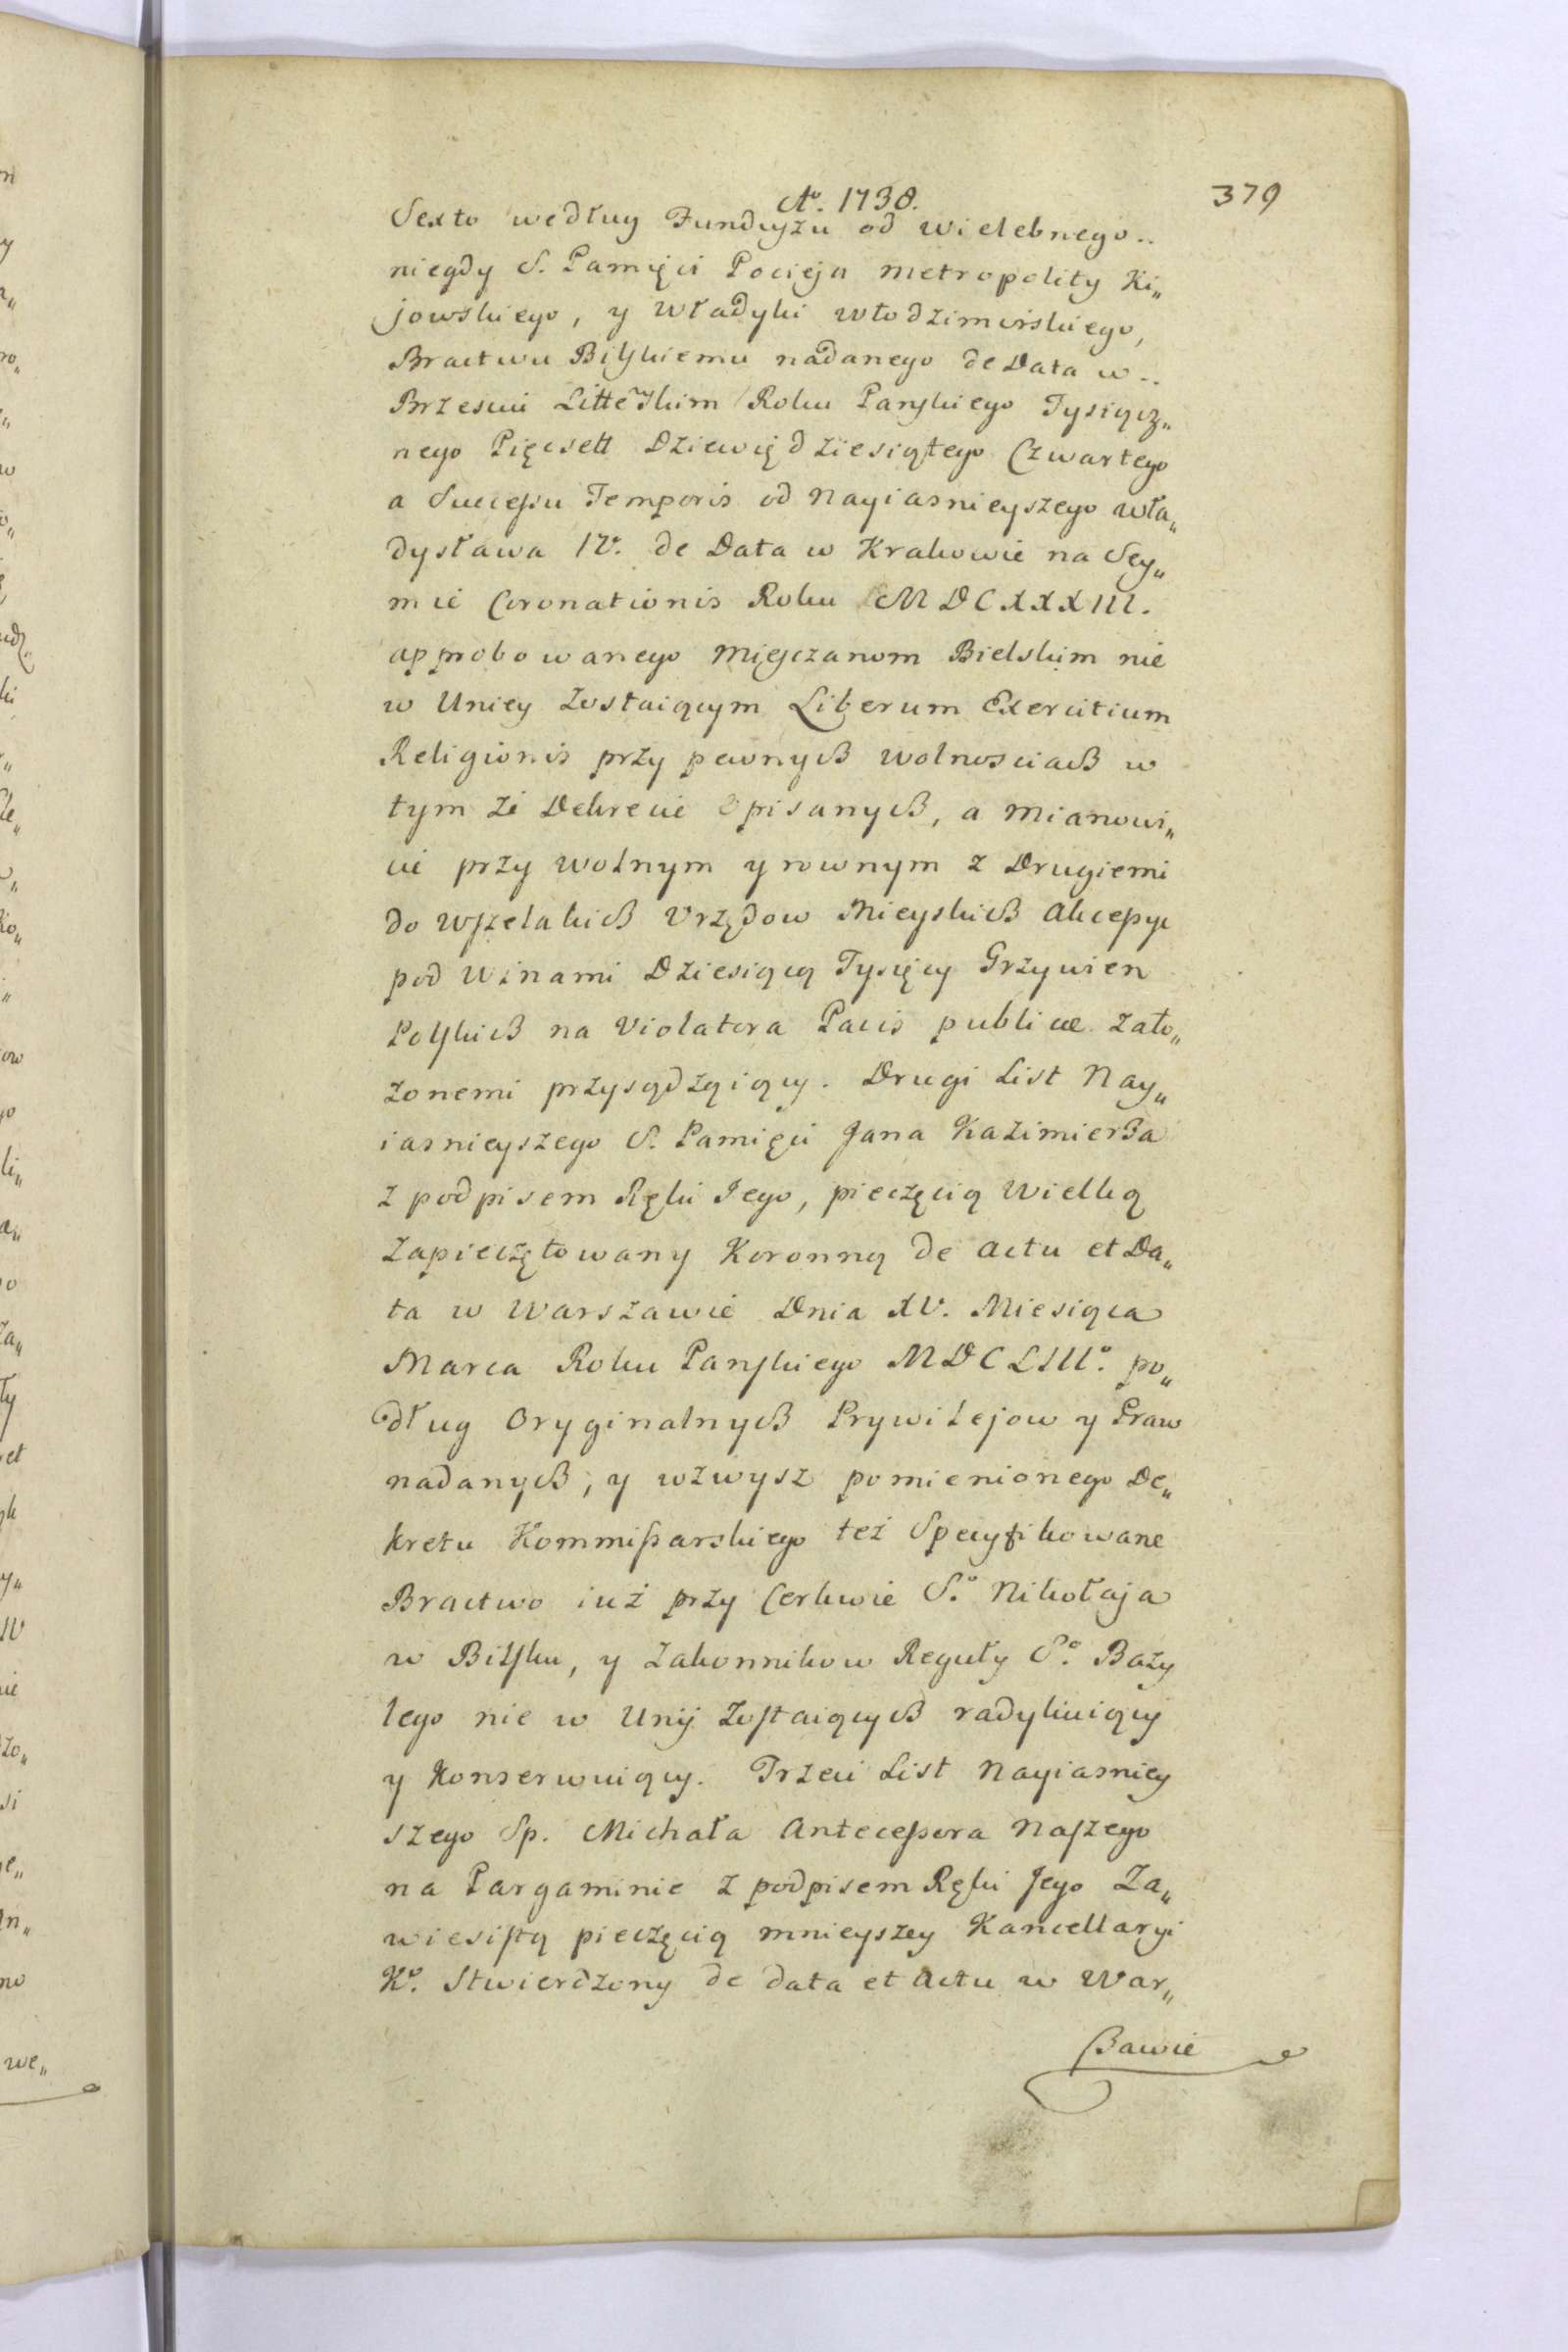 Ao. 1738.
379
Sexto według Funduszu od Wielebnego..
niegdy S. Pamięci Pocieja Metropolity Ki„
jowskiego, y Władyki Włodzimirskiego,
Bractwu Bilskiemu nadanego de Data w..
Brzesciu Littewskim Roku Panskiego Tysiącz„
nego Pięcsett Dziewiędziesiątego Czwartego
a Successu Temporis od Nayiasnieyszego Wła„
dysława IV. de Data w Krakowie na Sey„
mie Coronationis Roku MDCXXXIII.
approbowanego Mięsczanom Bielskim nie
w Uniey Zostaiącym Liberum Exercitium
Religionis przy pewnych wolnosciach w
tym że Dekrecie Opisanych, a Mianowi„
cie przy wolnym y rownym z Drugiemi
do wszelakich Urzędow Mieyskich Akcessye
pod Winami Dziesiącą Tysięcy Grzywien
Polskich na Violatora Pacis publicæ zało„
zonemi przysądzaiący. Drugi List Nay„
iasnieyszego S. Pamięci Jana Kazimierza
z podpisem Ręki Jego, pieczęcią Wielką
Zapieczętowany Koronną de actu et Da„
ta w Warszawie Dnia XV. Miesiąca
Marca Roku Panskiego MDCLIIIo. po„
dług Oryginalnych Prywilejow y Praw
nadanych, y wzwysz pomienionego De„
kretu Kommissarskiego też Specyfikowane
Bractwo iuż przy Cerkwie So. Nikołaja
w Bilsku, y Zakonnikow Reguły So. Bazy
lego nie w Unij Zostaiących radykuiący
y Konserwuiący. Trzeci List Nayiasniey
szego Sp. Michała Antecessora Naszego
na Pargaminie z podpisem Ręki Jego Za„
wiesistą pieczęcią mnieyszey Kancellaryi
Ko. Stwierdzony de data et Actu w War„
szawie